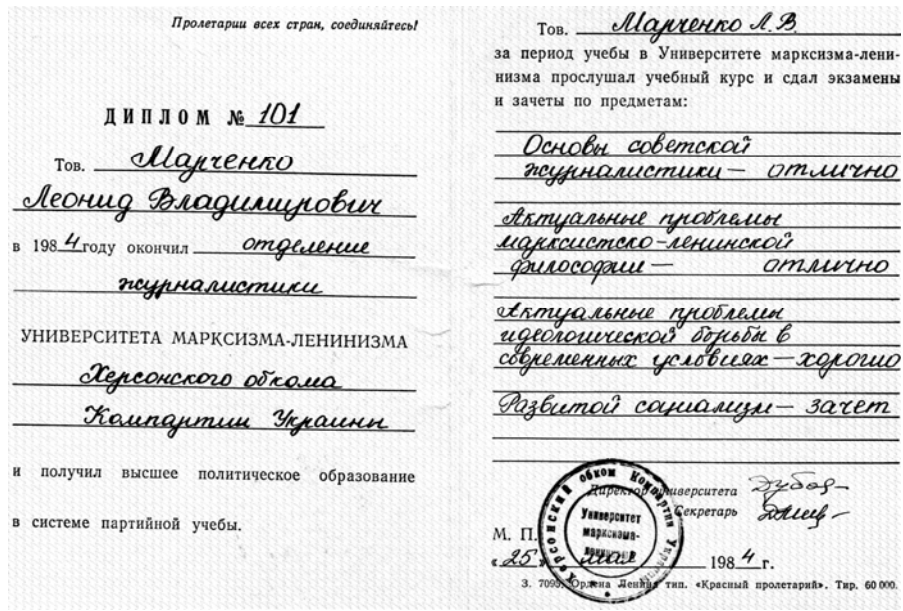 Пролетарии всех стран, соединяйтесь!
ДИПЛОМ № 101
Тов. Марченко
Леонид Владимирович
в 1984 году окончил отделение
журналистики
УНИВЕРСИТЕТА МАРКСИЗМА-ЛЕНИНИЗМА
Херсонского обкома
Компартии Украины
и получил высшее политическое образование
в системе партийной учебы.
Тов. Марченко Л.В.
за период учебы в Университете марксизма-лени-
низма прослушал учебный курс и сдал экзамены
и зачеты по предметам:
Основы советской
журналистики — отлично
Актуальные проблемы
марксистско-ленинской
философии — отлично
Актуальные проблемы
идеологической борьбы в
современных условиях — хорошо
Развитой социализм — зачет
Директор университета
Секретарь
М. П.
«25» мая 1984 г.
Херсонский обком Компартии Украины
Университет
марксизма-
ленинизма
З. 7095. Ордена Ленина тип. «Красный пролетарий». Тир. 60 000.